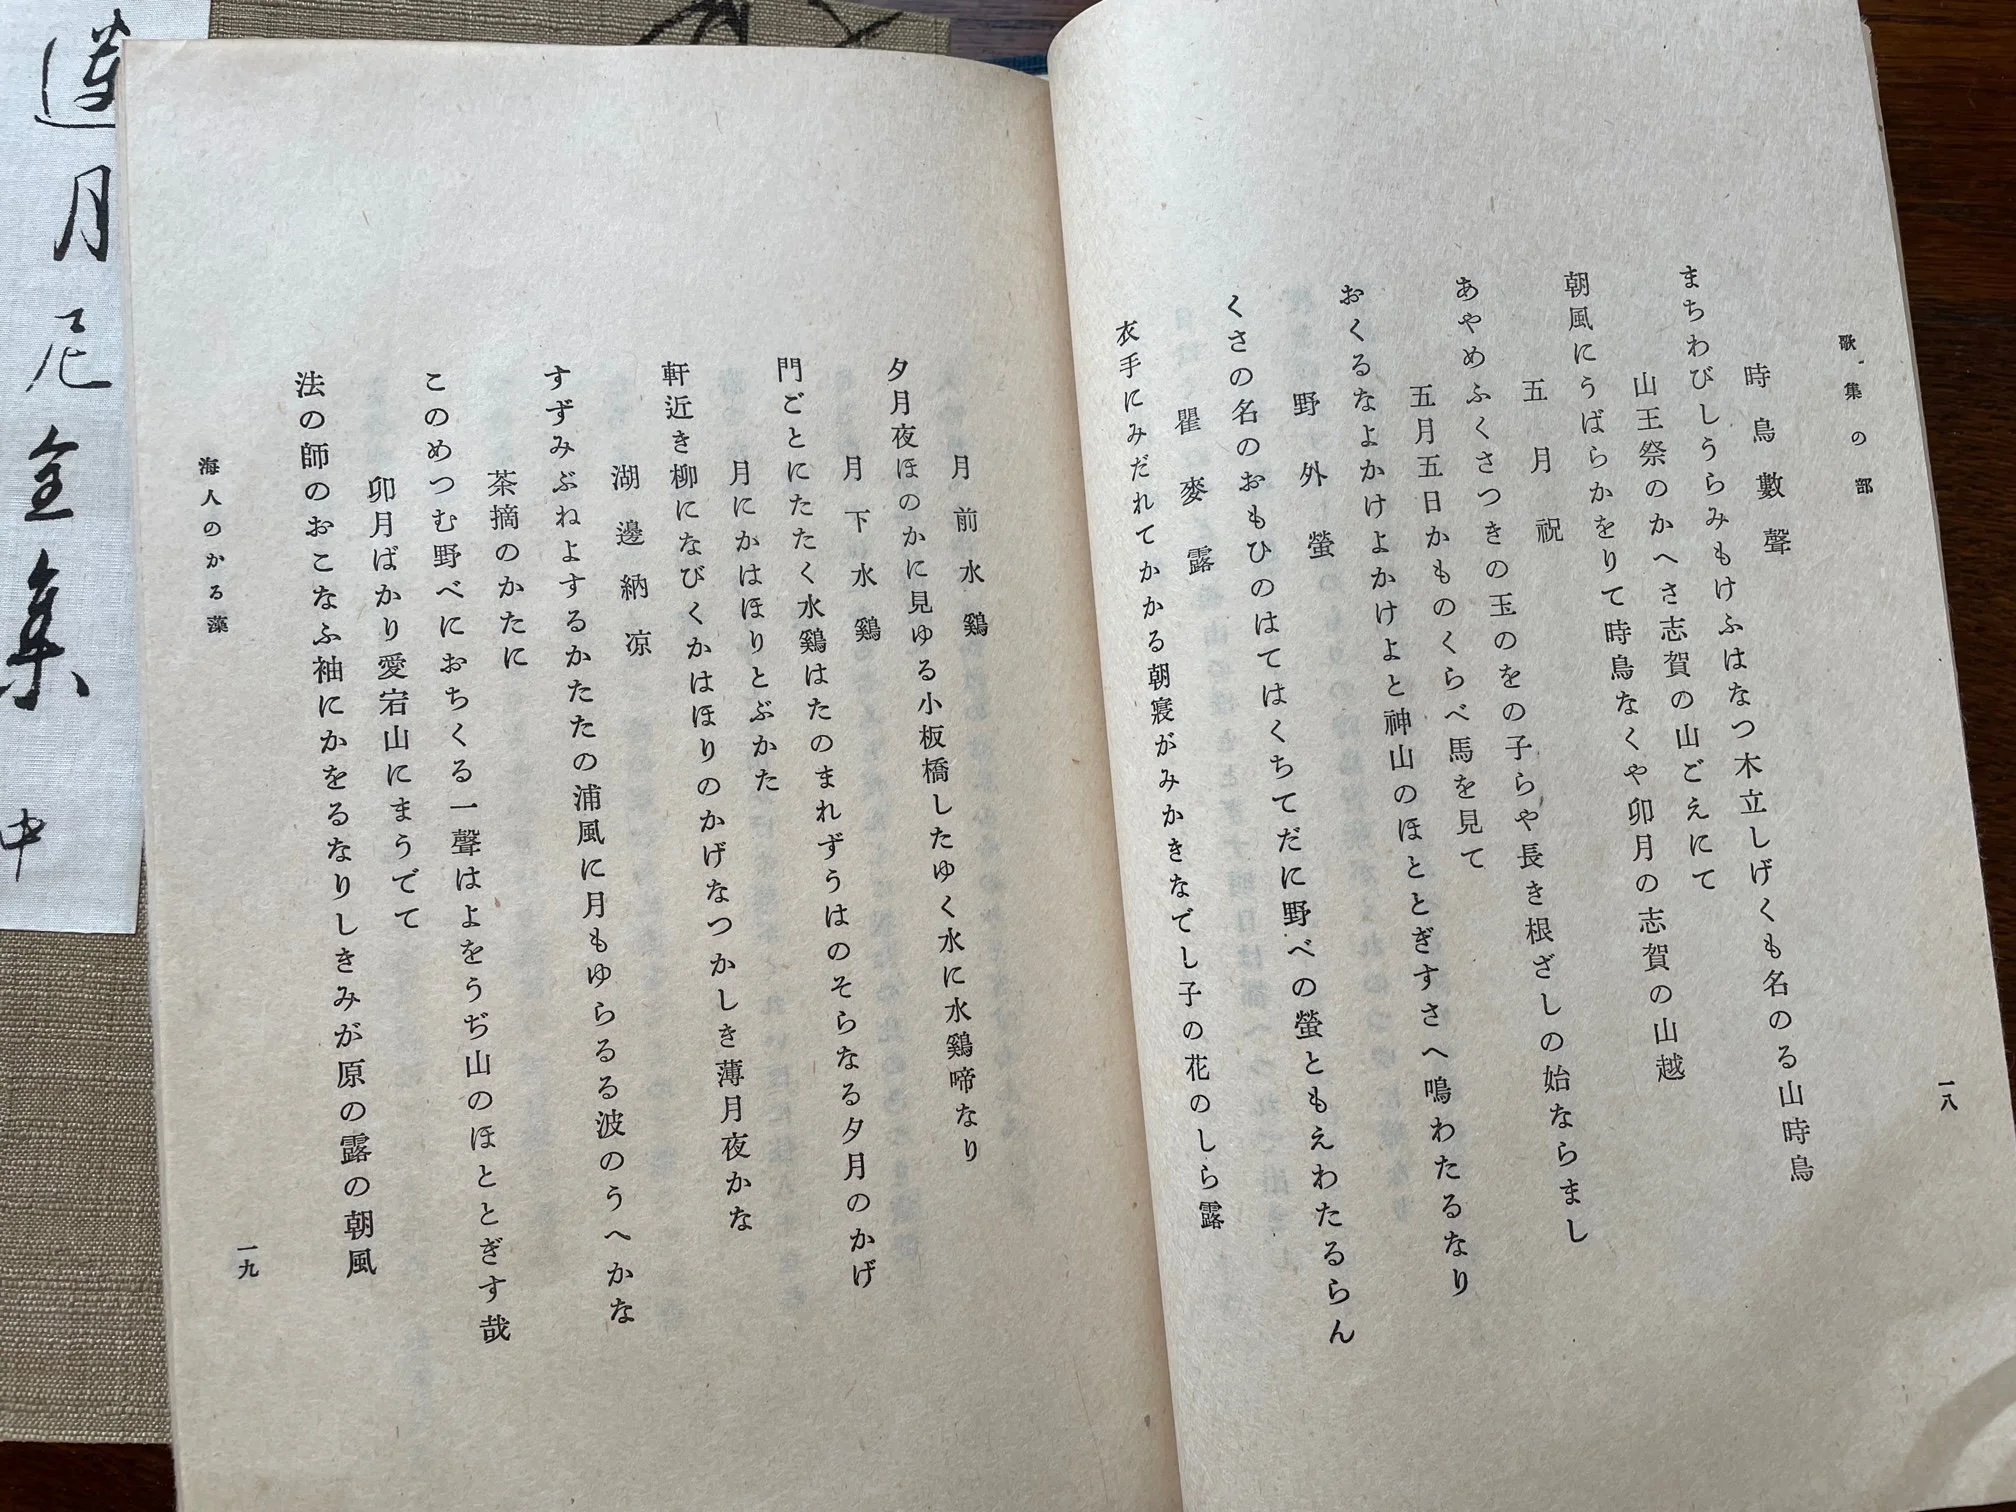 歌集の部
時鳥數聲
まちわびしうらみもけふはなつ木立しげくも名のる山時鳥
山王祭のかへさ志賀の山ごえにて
朝風にうばらかをりて時鳥なくや卯月の志賀の山越
五月祝
あやめふくさつきの玉のをの子らや長き根ざしの始ならまし
五月五日かものくらべ馬を見て
おくるなよかけよかけよと神山のほととぎすさへ鳴わたるなり
野外螢
くさの名のおもひのはてはくちてだに野べの螢ともえわたるらん
瞿麥露
衣手にみだれてかかる朝寝がみかきなでし子の花のしら露
一八
月前水鷄
夕月夜ほのかに見ゆる小板橋したゆく水に水鷄啼なり
月下水鷄
門ごとにたたく水鷄はたのまれずうはのそらなる夕月のかげ
月にかはほりとぶかた
軒近き柳になびくかはほりのかげなつかしき薄月夜かな
湖邊納凉
すずみぶねよするかたたの浦風に月もゆらるる波のうへかな
茶摘のかたに
このめつむ野べにおちくる一聲はよをうぢ山のほととぎす哉
卯月ばかり愛宕山にまうでて
法の師のおこなふ袖にかをるなりしきみが原の露の朝風
海人のかる藻
一九
蓮月尼全集 中